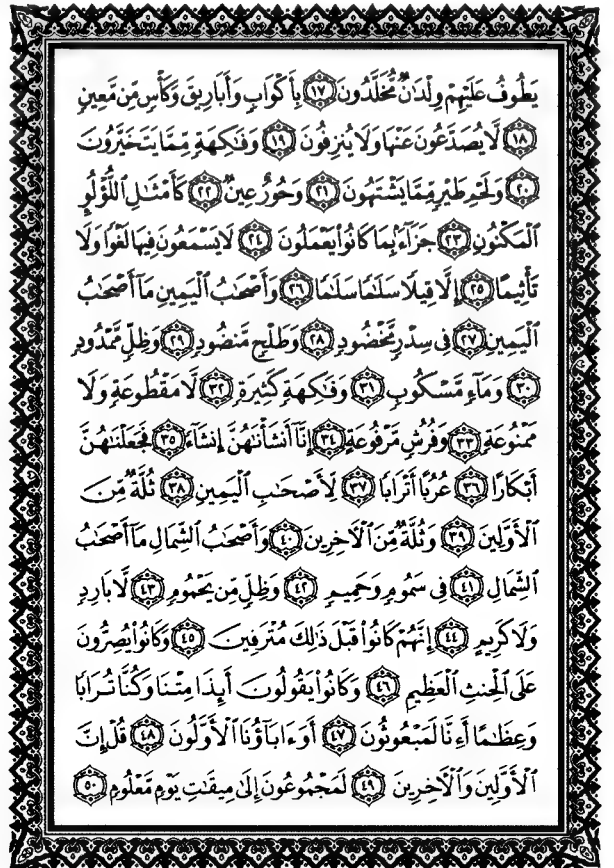 يَطُوفُ عَلَيْهِمْ وِلْدَٰنٌ مُّخَلَّدُونَ ١٧ بِأَكْوَابٍ وَأَبَارِيقَ وَكَأْسٍ مِّن مَّعِينٍ
١٨ لَّا يُصَدَّعُونَ عَنْهَا وَلَا يُنزِفُونَ ١٩ وَفَٰكِهَةٍ مِّمَّا يَتَخَيَّرُونَ
٢٠ وَلَحْمِ طَيْرٍ مِّمَّا يَشْتَهُونَ ٢١ وَحُورٌ عِينٌ ٢٢ كَأَمْثَٰلِ اللُّؤْلُوِٕ
الْمَكْنُونِ ٢٣ جَزَآءًۢ بِمَا كَانُوا۟ يَعْمَلُونَ ٢٤ لَا يَسْمَعُونَ فِيهَا لَغْوًا وَلَا
تَأْثِيمًا ٢٥ إِلَّا قِيلًا سَلَٰمًا سَلَٰمًا ٢٦ وَأَصْحَٰبُ الْيَمِينِ مَآ أَصْحَٰبُ
الْيَمِينِ ٢٧ فِى سِدْرٍ مَّخْضُودٍ ٢٨ وَطَلْحٍ مَّنضُودٍ ٢٩ وَظِلٍّ مَّمْدُودٍ
٣٠ وَمَآءٍ مَّسْكُوبٍ ٣١ وَفَٰكِهَةٍ كَثِيرَةٍ ٣٢ لَّا مَقْطُوعَةٍ وَلَا
مَمْنُوعَةٍ ٣٣ وَفُرُشٍ مَّرْفُوعَةٍ ٣٤ إِنَّآ أَنشَأْنَٰهُنَّ إِنشَآءً ٣٥ فَجَعَلْنَٰهُنَّ
أَبْكَارًا ٣٦ عُرُبًا أَتْرَابًا ٣٧ لِّأَصْحَٰبِ الْيَمِينِ ٣٨ ثُلَّةٌ مِّنَ
الْأَوَّلِينَ ٣٩ وَثُلَّةٌ مِّنَ الْءَاخِرِينَ ٤٠ وَأَصْحَٰبُ الشِّمَالِ مَآ أَصْحَٰبُ
الشِّمَالِ ٤١ فِى سَمُومٍ وَحَمِيمٍ ٤٢ وَظِلٍّ مِّن يَحْمُومٍ ٤٣ لَّا بَارِدٍ
وَلَا كَرِيمٍ ٤٤ إِنَّهُمْ كَانُوا۟ قَبْلَ ذَٰلِكَ مُتْرَفِينَ ٤٥ وَكَانُوا۟ يُصِرُّونَ
عَلَى الْحِنثِ الْعَظِيمِ ٤٦ وَكَانُوا۟ يَقُولُونَ أَئِذَا مِتْنَا وَكُنَّا تُرَابًا
وَعِظَٰمًا أَءِنَّا لَمَبْعُوثُونَ ٤٧ أَوَءَابَآؤُنَا الْأَوَّلُونَ ٤٨ قُلْ إِنَّ
الْأَوَّلِينَ وَالْءَاخِرِينَ ٤٩ لَمَجْمُوعُونَ إِلَىٰ مِيقَٰتِ يَوْمٍ مَّعْلُومٍ ٥٠